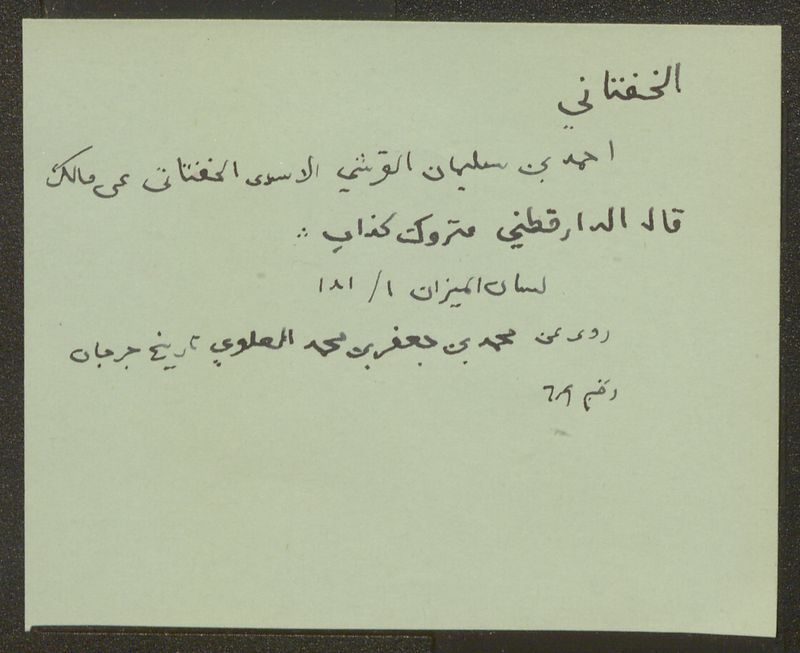 الخفتاني
احمد بن سليمان القرشي الاسدى الخفتانى عن مالك
قال الدارقطني متروك كذاب
لسان الميزان ١/ ١٨١
روى عن محمد بن جعفر بن محمد العلوي تاريخ جرجان
رقم